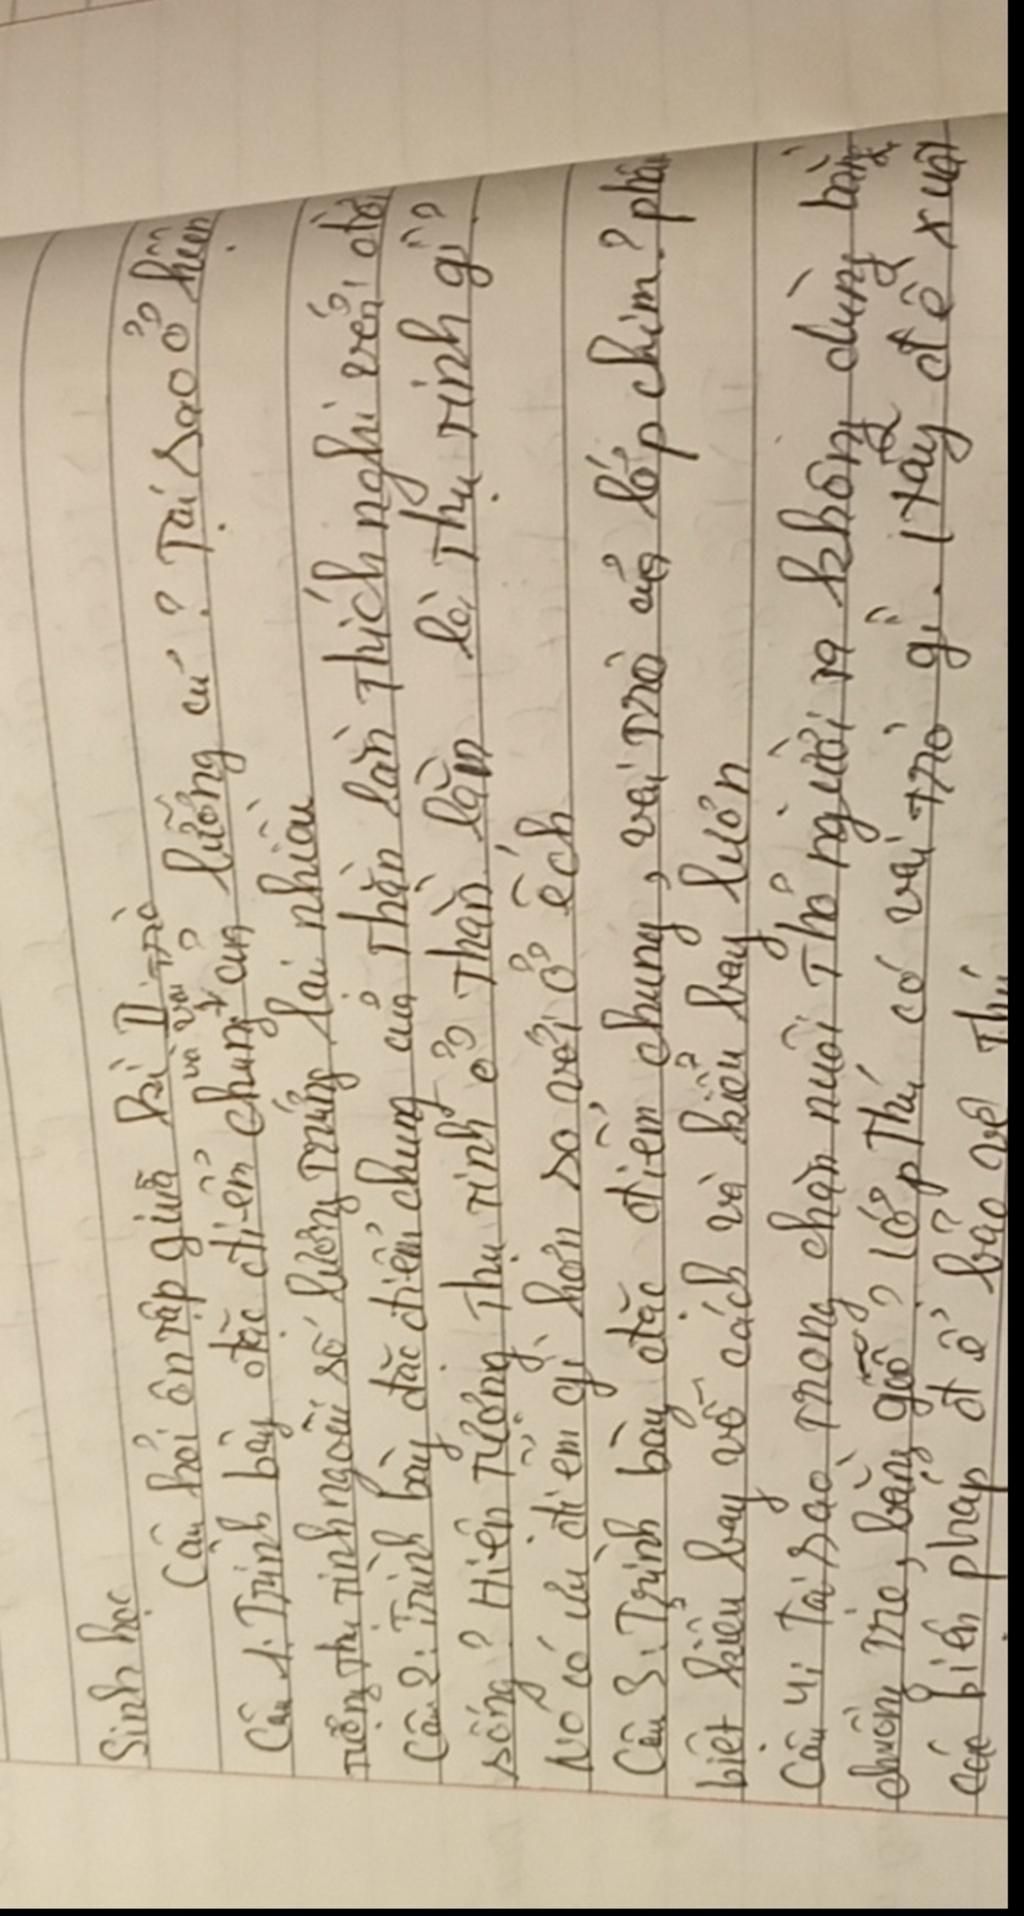 Sinh học
Câu hỏi ôn tập giữa kì II
và vai trò
Câu 1: Trình bày đặc điểm chung của lưỡng cư? Tại sao ở hiện
tượng thụ tinh ngoài số lượng trứng lại nhiều
Câu 2: Trình bày đặc điểm chung của Thằn lằn Thích nghi với đời
sống? Hiện tượng Thụ tinh ở Thằn lằn là Thụ tinh gì?
Nó có ưu điểm gì hơn so với ở ếch
Câu 3: Trình bày đặc điểm chung, vai trò của lớp chim? phân
biệt kiểu bay vỗ cánh và kiểu bay lượn
Câu 4: Tại sao trong chăn nuôi Thỏ người ta không dùng bằng
chuồng tre, bằng gỗ? lớp Thú có vai trò gì. Hãy đề xuất
các biến pháp để bảo vệ Thú